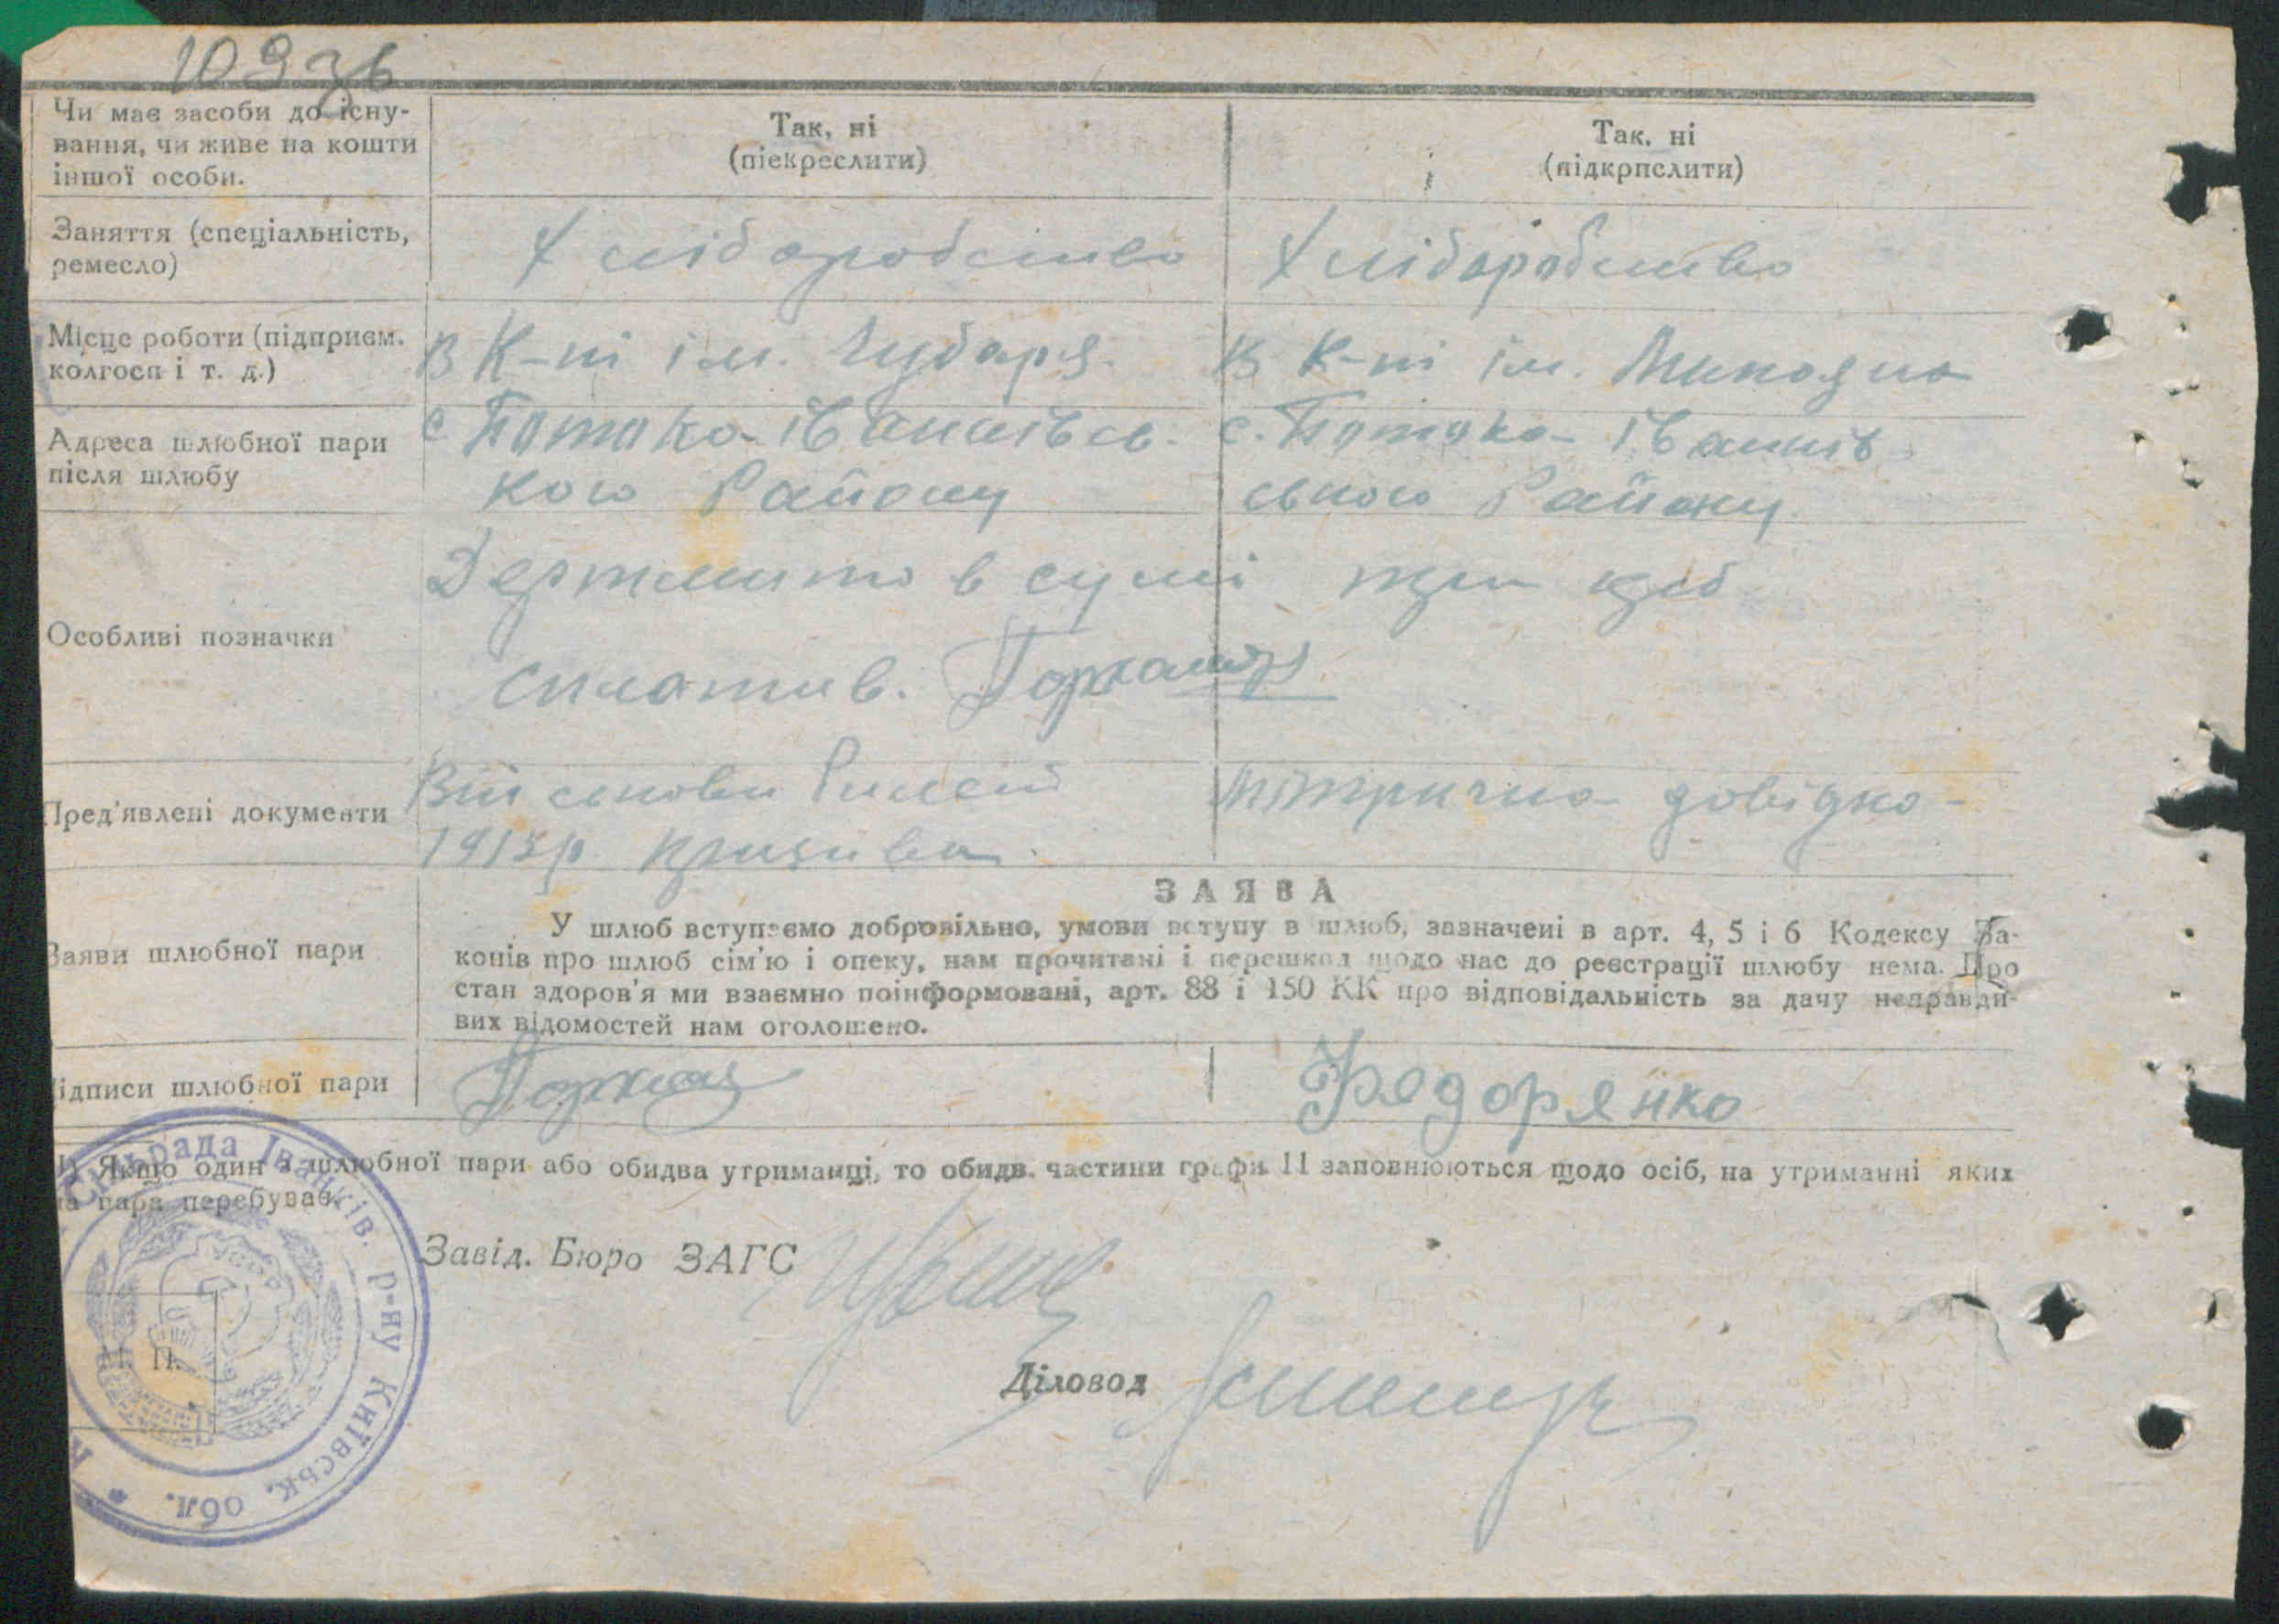 109зв
Чи має засоби до існу-
вання, чи живе на кошти
іншої особи.
Так, ні
(піекреслити)
Так, ні
(підкрпслити)
Заняття (спеціальність,
ремесло)
Хліборобство
Хліборобство
Місце роботи (підприєм.
колгосп і т. д.)
В К-пі ім. Чубаря.
В К-пі ім.
Адреса шлюбної пари
після шлюбу
с. Потока-Іванківсь-
кого Району
с. Потока-Іванків
ського Району
Особливі позначки
Держмито в сумі три крб
сплатив.
Пред'явлені документи
Військовий білет
1913р.
Метрична довідка
Заяви шлюбної пари
ЗАЯВА
У шлюб вступаємо добровільно, умови вступу в шлюб, зазначені в арт. 4, 5 і 6 Кодексу За-
конів про шлюб сім'ю і опеку, нам прочитані і перешкод щодо нас до реєстрації шлюбу нема. Про
стан здоров'я ми взаємно поінформовані, арт. 88 і 150 КК про відповідальність за дачу неправди-
вих відомостей нам оголошено.
ідписи шлюбної пари
Федорянко
1) Якщо один з шлюбної пари або обидва утриманці, то обидв. частини графи 11 заповнюються щодо осіб, на утриманні яких
ця пара перебуває.
Завід. Бюро ЗАГС
Діловод
М. П.
Сільрада Іванків. р-ну Київськ. обл. *
УСРР